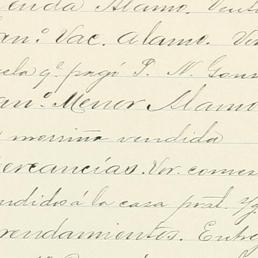 enda Alamo. Vent
an.º Vac. Alamo. Ve
ela q.e pagó P. N. Gonz
an.º Menor Alamo
merino vendida
ercancías. Ver. comer
ndidos á la casa pral.
rrendamientos. Entre